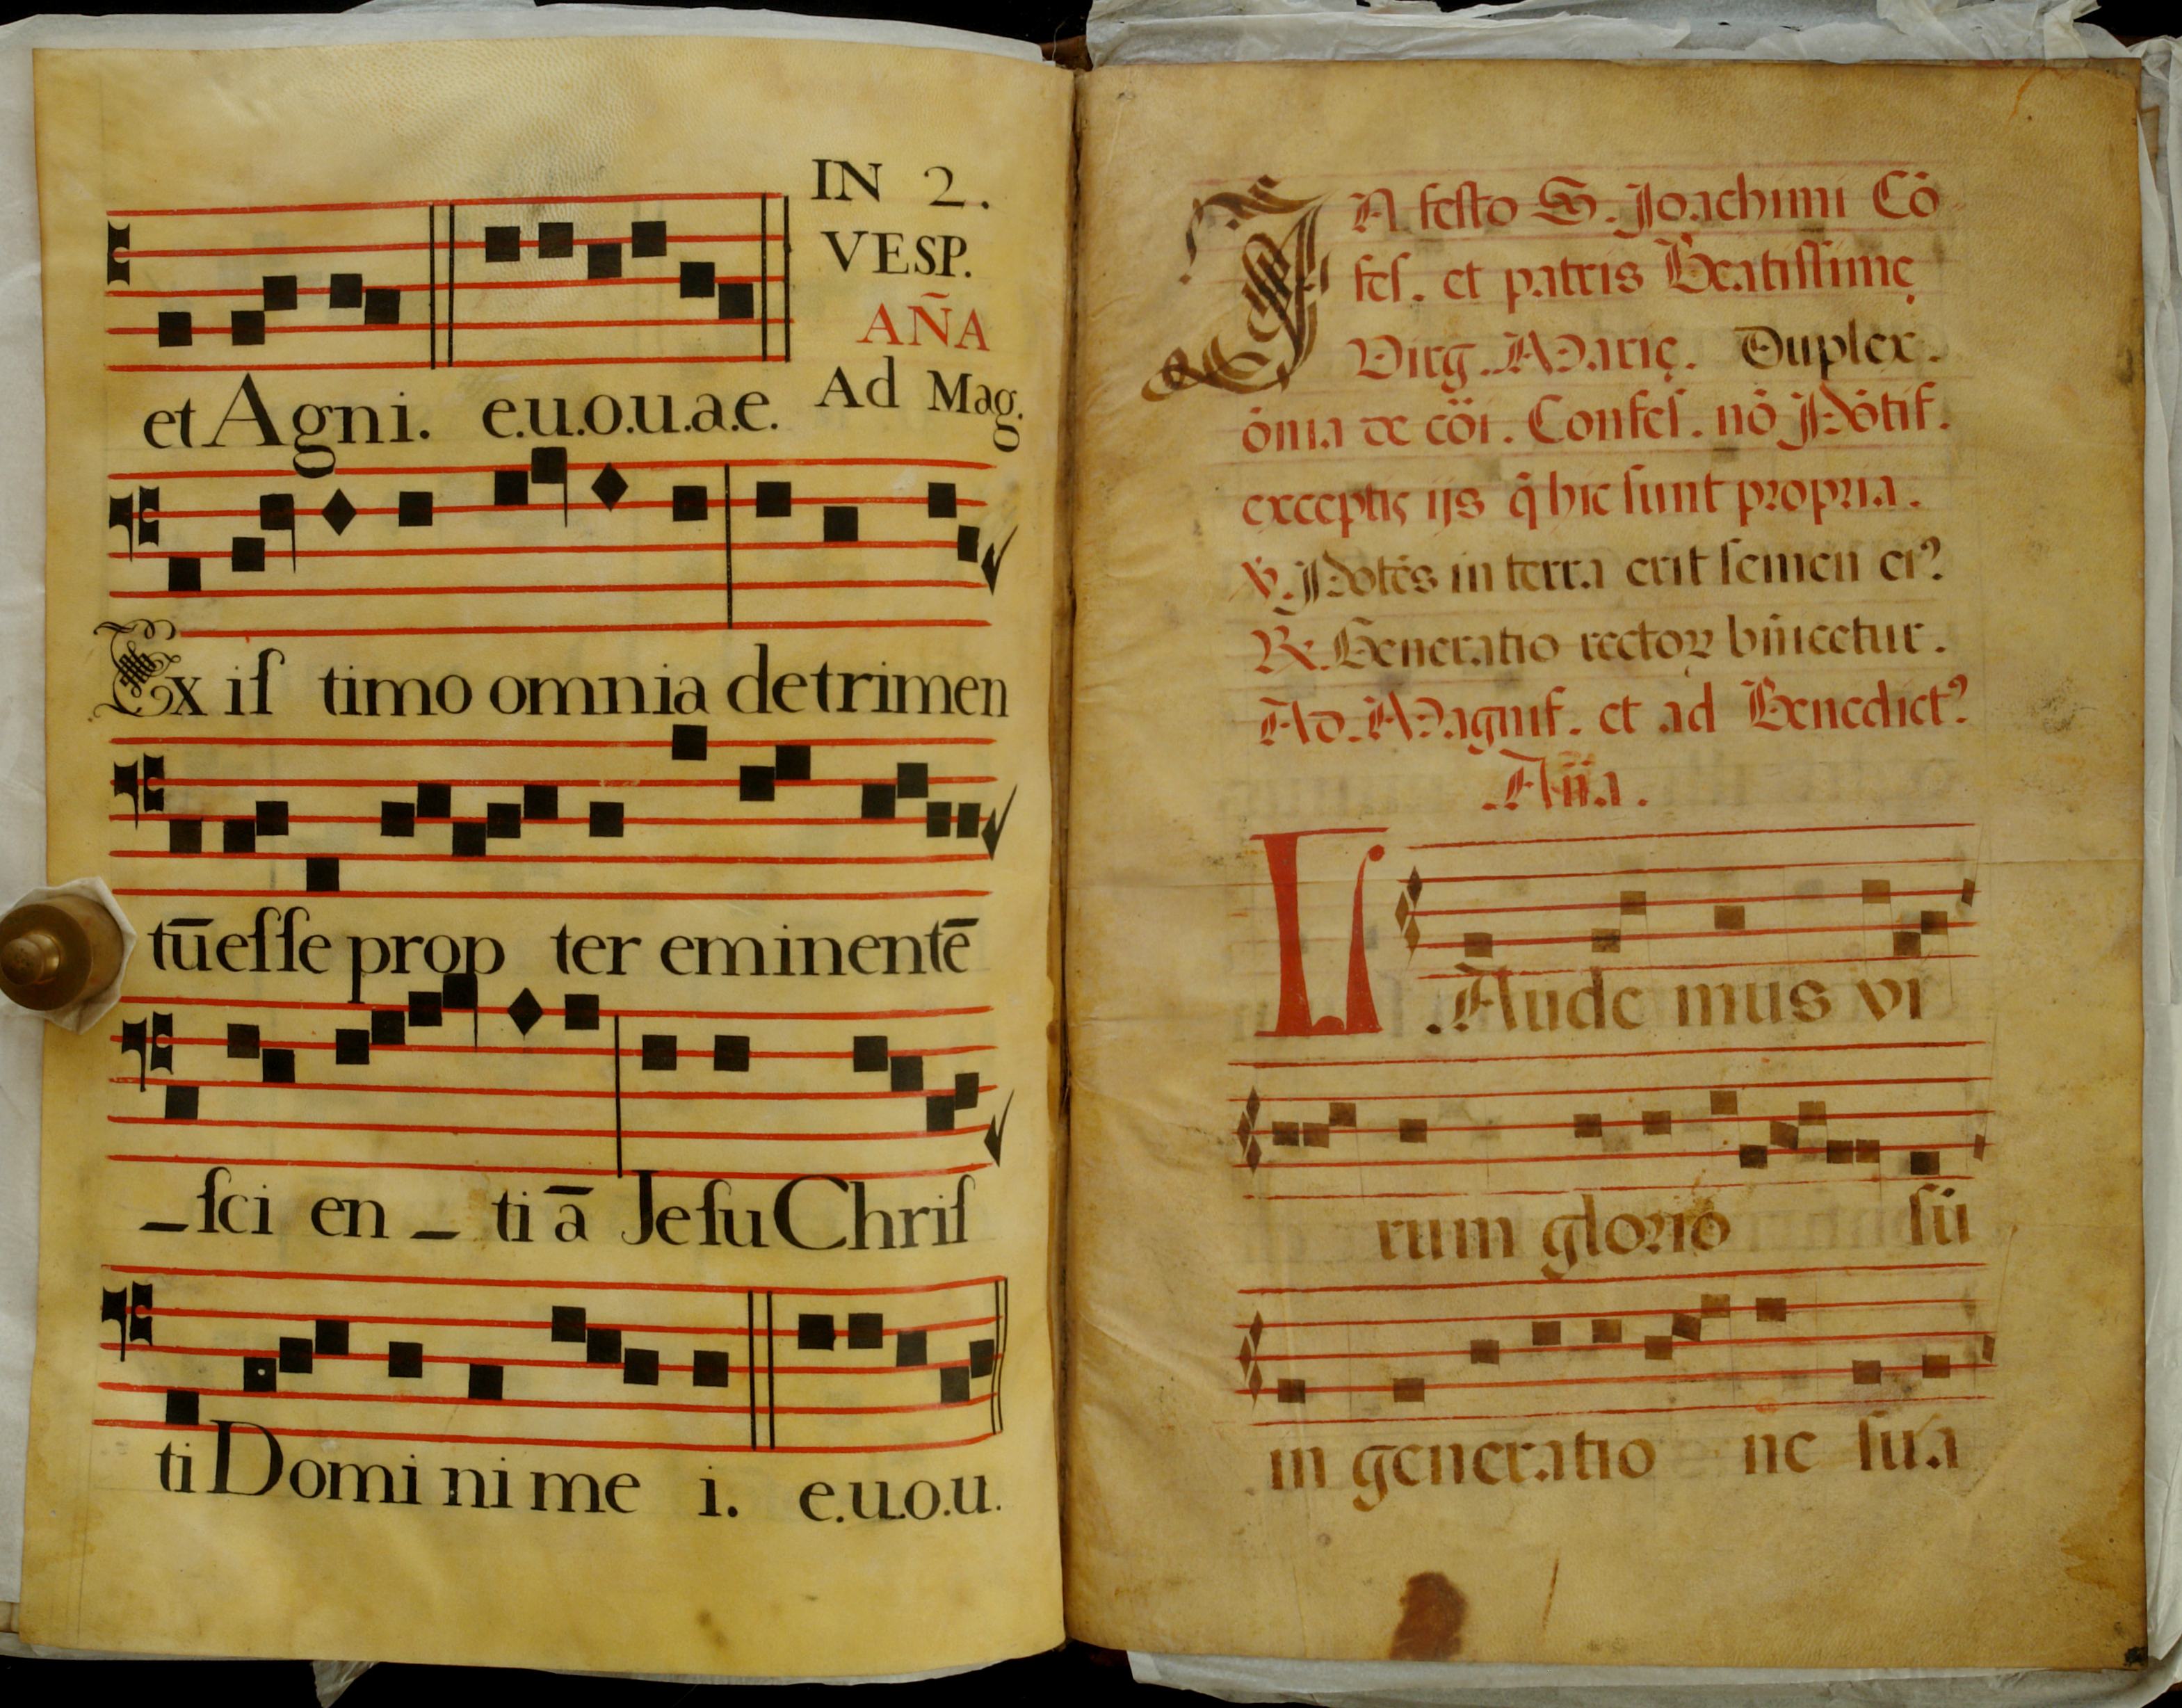 IN 2.
VESP.
AÑA
Ad Mag.
et Agni. e.u.o.u.a.e.
Ex iſ timo omnia detrimen
tūeſſe prop ter eminentē
_ſci en _ ti ā JeſuChriſ
ti Domi ni me i. e.u.o.u.
IN feſto S. Joachimi Cō
feſ. et patris Beatiſſimę
Virg. Marię. Duplex.
ōnia de cōi. Confeſ. nō Pōtif.
exceptis ijs q̄ hic ſunt propria.
℣. Potēs in terra erit ſemen eiꝰ
℟. Generatio rectoꝝ bn̄icetur.
Ad. Magnif. et ad Benedictꝰ
Aña.
LAude mus vi
rum glorio ſū
in generatio ne ſua